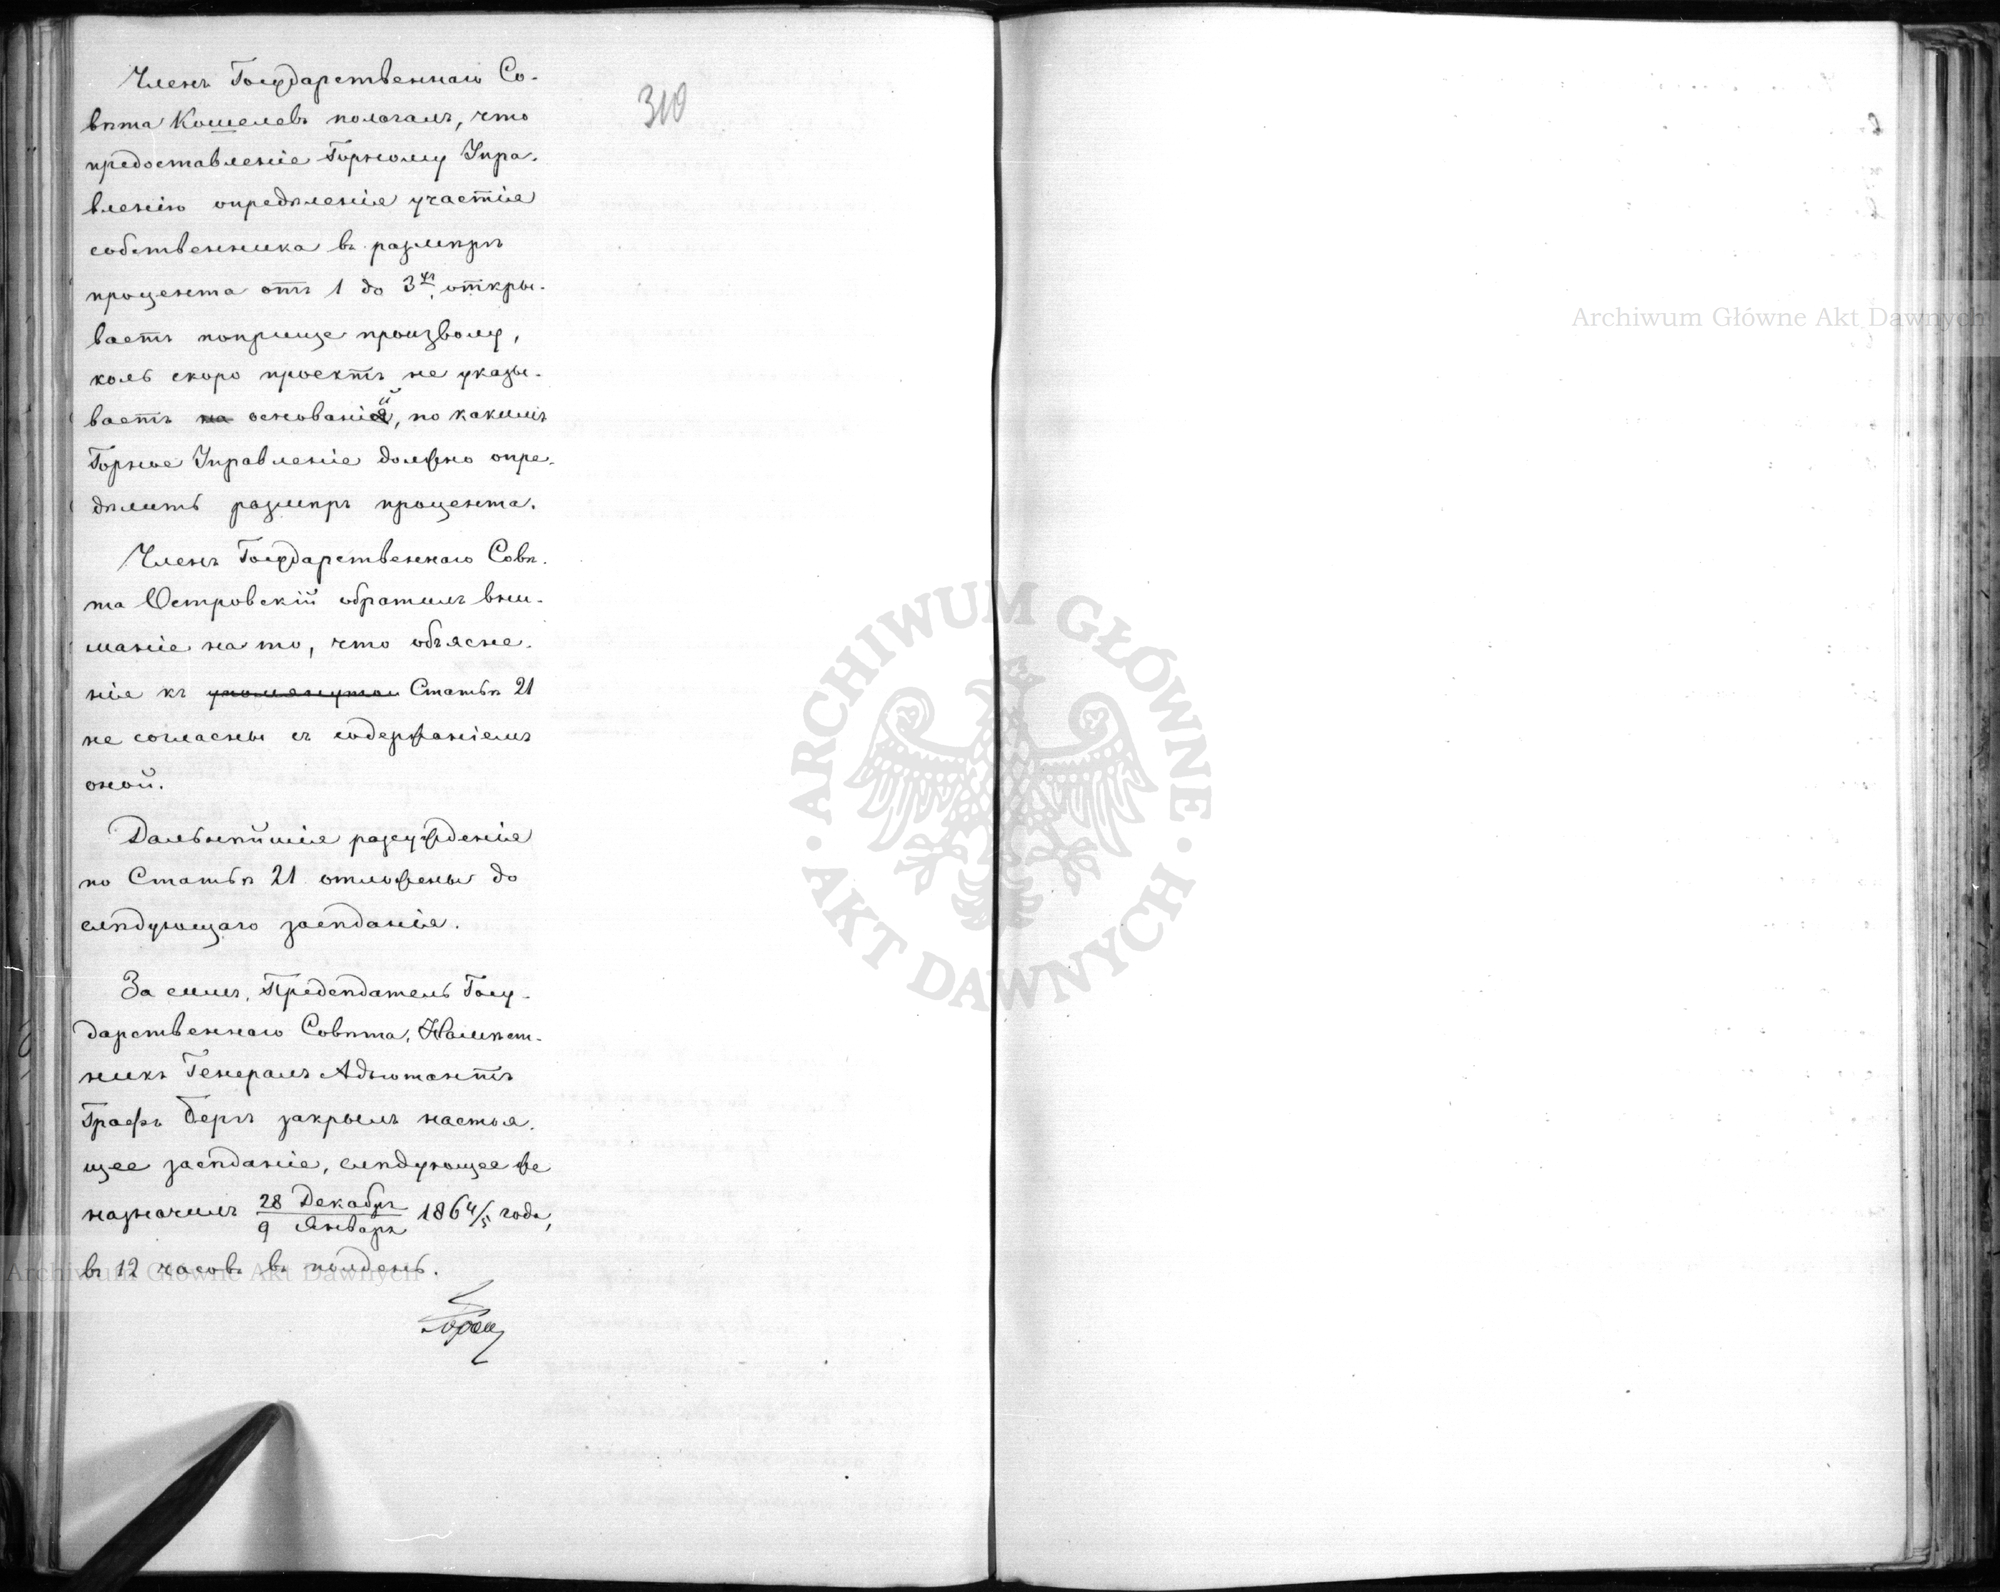 310
Членъ Государственнаго Со-
вѣта Кошелевъ полагалъ, что
предоставленіе Горному Упра-
вленію опредѣленія участія
собственника въ размѣрѣ
процента отъ 1 до 3хъ, откры-
ваетъ поприще произволу,
коль скоро проектъ не указы-
ваетъ на основаній, по какимъ
Горное Управленіе должно опре-
дѣлить размѣръ процента.
Членъ Государственнаго Совѣ-
та Островскій обратилъ вни-
маніе на то, что объясне-
нія къ упомянутой Статьѣ 21
не согласны съ содержаніемъ
оной.
Дальнѣйшія разсужденія
по Статьѣ 21 отложены до
слѣдующаго засѣданія.
За симъ, Предсѣдатель Госу-
дарственнаго Совѣта, Намѣст-
никъ Генералъ Адъютантъ
Графъ Бергъ закрылъ настоя-
щее засѣданіе, слѣдующее же
назначилъ 28 Декабря / 9 Января 1864/5 года,
въ 12 часовъ въ полдень.
Archiwum Główne Akt Dawnych
Archiwum Główne Akt Dawnych
ARCHIWUM GŁÓWNE · AKT DAWNYCH ·